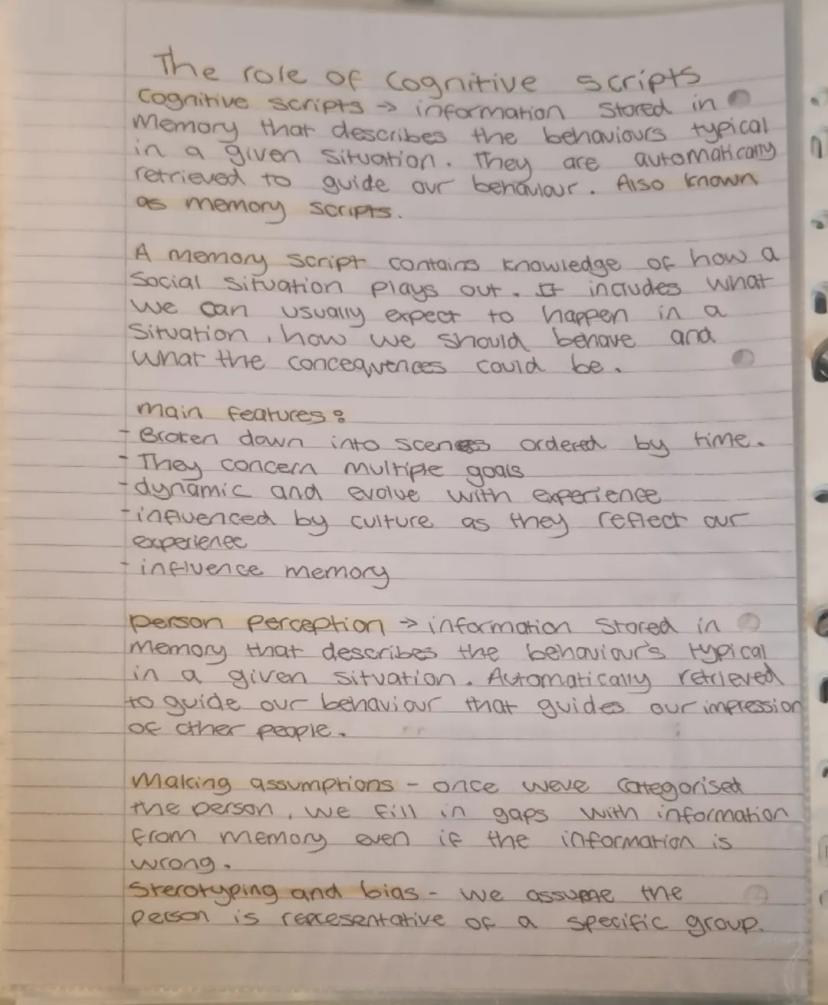 The role of cognitive scripts
cognitive scripts → information stored in
memory that describes the behaviours typical
in a given situation. They are automatically
retrieved to guide our behaviour. Also known
as memory scripts.
A memory script contains knowledge of how a
social situation plays out. It includes what
we can usually expect to happen in a
situation, how we should behave and
what the concequences could be.
main features:
- Broken down into scenes ordered by time.
- They concern multiple goals
- dynamic and evolve with experience
- influenced by culture as they reflect our
experience
- influence memory
person perception → information stored in
memory that describes the behaviour's typical
in a given situation. Automatically retrieved
to guide our behaviour that guides our impression
of other people.
Making assumptions - once weve categorised
the person, we fill in gaps with information
from memory even if the information is
wrong.
Sterotyping and bias - we assume the
person is representative of a specific group.